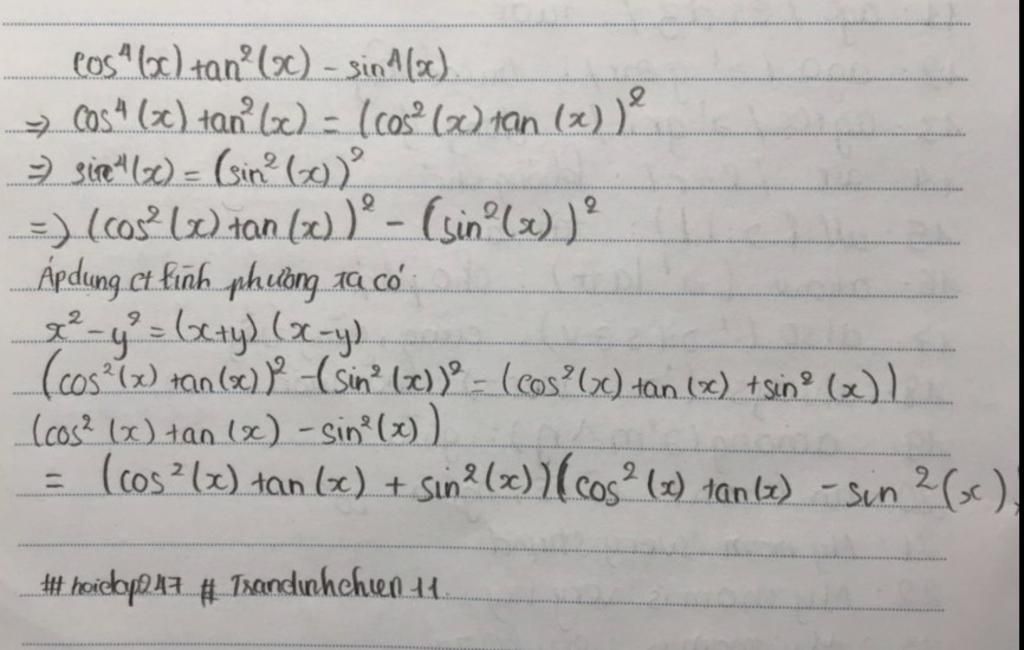 cos⁴(x) tan²(x) - sin⁴(x)
=> cos⁴(x) tan²(x) = (cos²(x) tan (x))²
=> sin⁴(x) = (sin²(x))²
=> (cos²(x) tan(x))² - (sin²(x))²
Áp dụng ct bình phương ta có
x² - y² = (x+y) (x-y)
(cos²(x) tan(x))² - (sin²(x))² = (cos²(x) tan(x) + sin²(x))
(cos²(x) tan(x) - sin²(x))
= (cos²(x) tan(x) + sin²(x))(cos²(x) tan(x) - sin²(x)
# hoidap247 # Trandinhchien 11